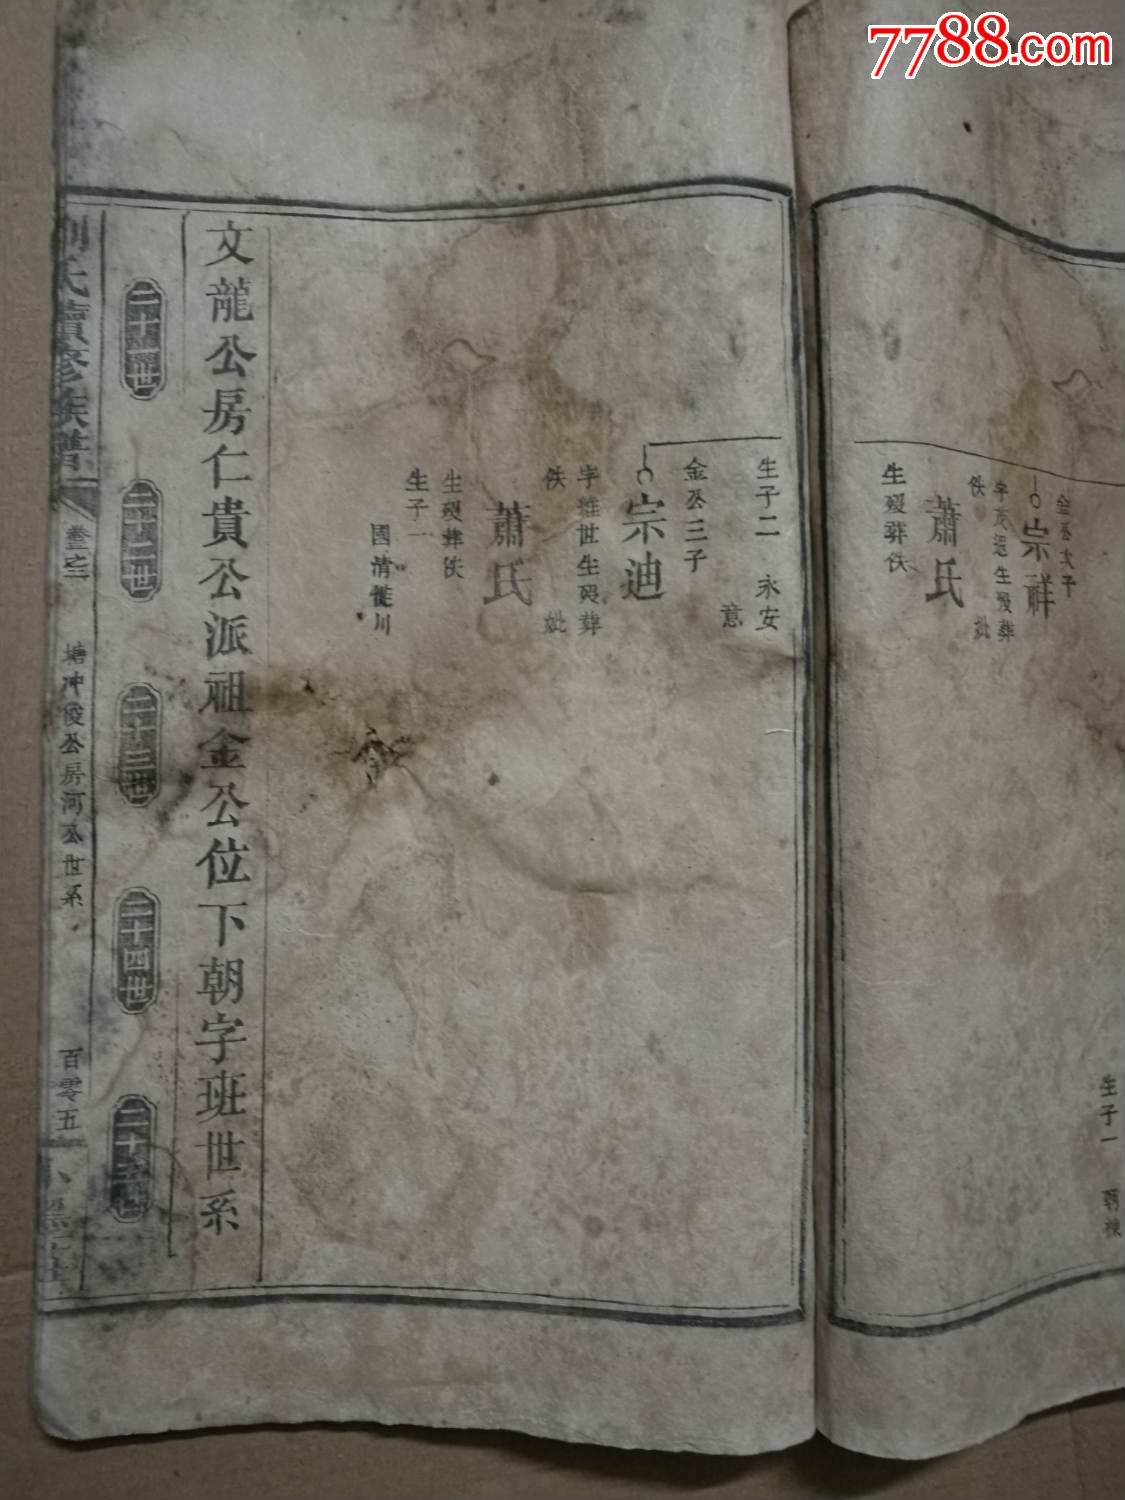 7788.com
金公次子
宗祥
生殁葬
妣
佚
蕭氏
生殁葬佚
生子一
生子二 永安
意
金公三子
宗迪
字維世生殁葬
佚 妣
蕭氏
生殁葬佚
生子一
國清徙川
文龍公房仁貴公派祖金公位下朝字班世系
二十一世
二十二世
二十三世
二十四世
二十五世
劉氏續修族譜
卷之二
塘冲俊公房河公世系
百零五